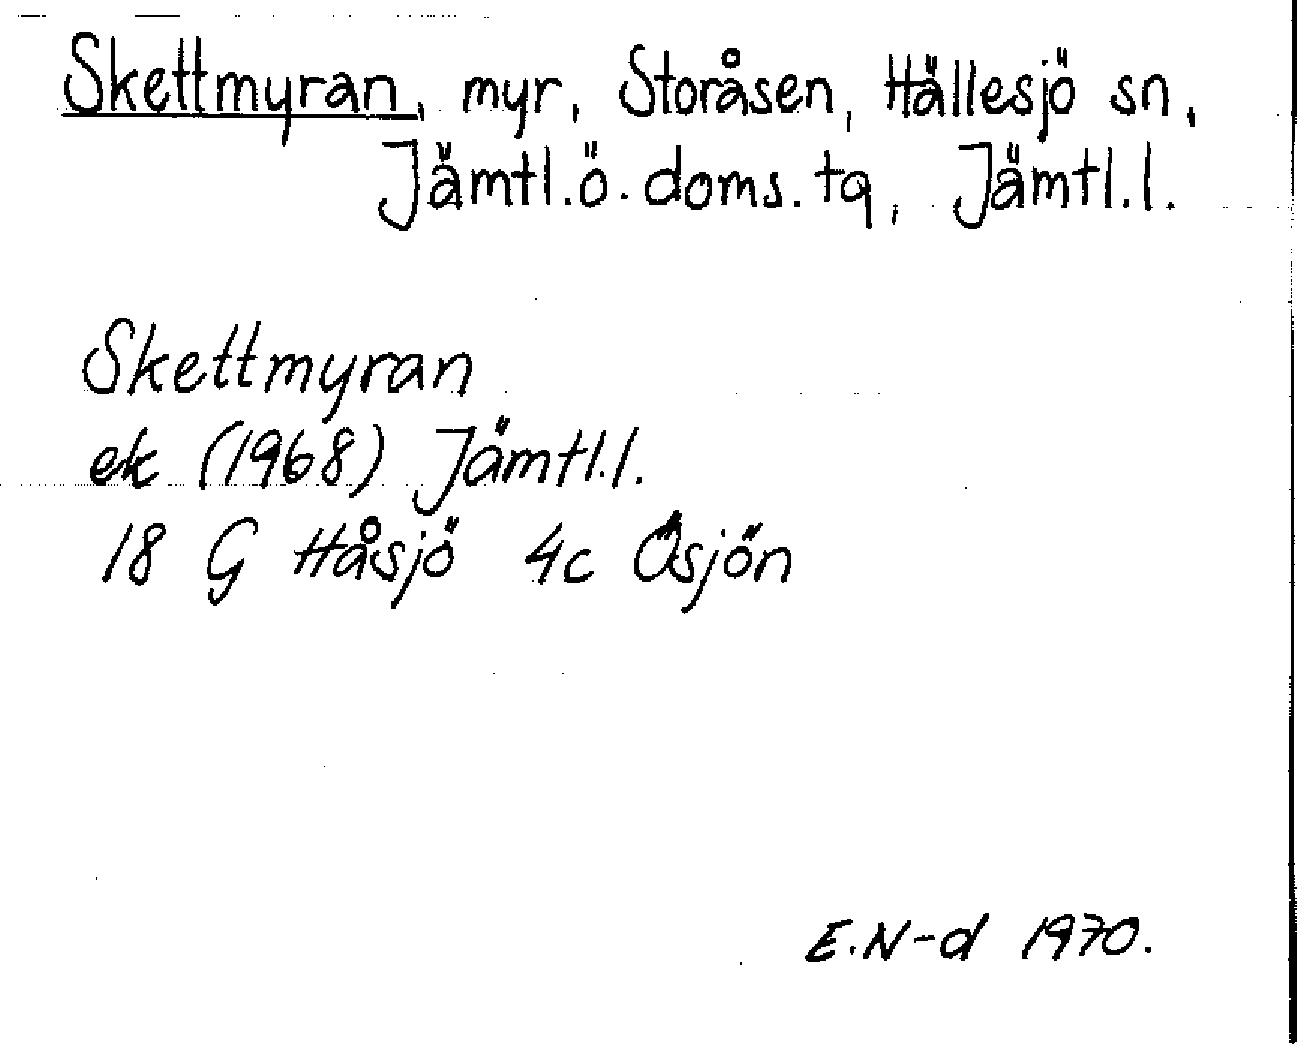 Skettmyran, myr, Storåsen, Hällesjö sn,
Jämtl.ö. doms. tq, Jämtl.l.
Skettmyran
ek (1968) Jämtl.l.
18 G Håsjö 4c Ösjön
E.N-d 1970.